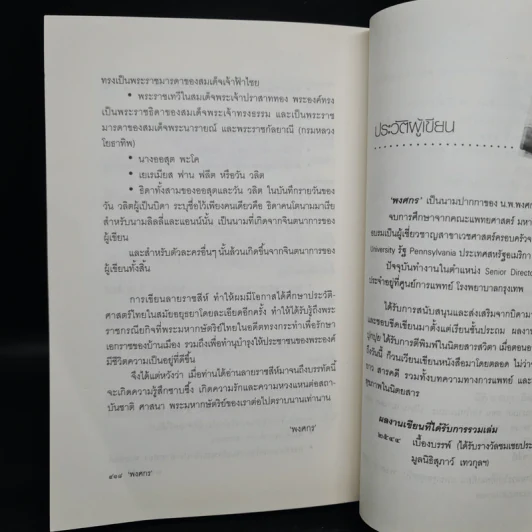 ทรงเป็นพระราชมารดาของสมเด็จเจ้าฟ้าไชย
• พระราชเทวีในสมเด็จพระเจ้าปราสาททอง พระองค์ทรง
เป็นพระราชธิดาของสมเด็จพระเจ้าทรงธรรม และเป็นพระราช
มารดาของสมเด็จพระนารายณ์ และพระราชกัลยาณี (กรมหลวง
โยธาทิพ)
• นางออสุต พะโค
• เยเรเมียส ฟาน ฟลีต หรือวัน วลิต
• ธิดาทั้งสามของออสุตและวัน วลิต ในบันทึกรายวันของ
วัน วลิตผู้เป็นบิดา ระบุชื่อไว้เพียงคนเดียวคือ ธิดาคนโตนามมาเรีย
สำหรับนามลิลลี่และแอนน์นั้น เป็นนามที่เกิดจากจินตนาการของ
ผู้เขียน
และสำหรับตัวละครอื่นๆ นั้นล้วนเกิดขึ้นจากจินตนาการของ
ผู้เขียนทั้งสิ้น
การเขียนลายราชสีห์ ทำให้ผมมีโอกาสได้ศึกษาประวัติ-
ศาสตร์ไทยในสมัยอยุธยาโดยละเอียดอีกครั้ง ทำให้ได้รับรู้ถึงพระ
ราชกรณียกิจที่พระมหากษัตริย์ไทยในอดีตทรงกระทำเพื่อรักษา
เอกราชของบ้านเมือง รวมถึงเพื่อทำนุบำรุงให้ประชาชนของพระองค์
มีชีวิตความเป็นอยู่ที่ดีขึ้น
จึงได้แต่หวังว่า เมื่อท่านได้อ่านลายราชสีห์มาจนถึงบรรทัดนี้
จะเกิดความรู้สึกซาบซึ้ง เกิดความรักและความหวงแหนต่อสถา-
บันชาติ ศาสนา พระมหากษัตริย์ของเราต่อไปตราบนานเท่านาน
'พงศกร'
'พงศกร'
ประวัติผู้เขียน
'พงศกร' เป็นนามปากกาของ น.พ.พงศ
จบการศึกษาจากคณะแพทยศาสตร์ มหา
อบรมเป็นผู้เชี่ยวชาญสาขาเวชศาสตร์ครอบครัวจ
University รัฐ Pennsylvania ประเทศสหรัฐอเมริกา
ปัจจุบันทำงานในตำแหน่ง Senior Direct
ประจำอยู่ที่ศูนย์การแพทย์ โรงพยาบาลกรุงเทพ
ได้รับการสนับสนุนและส่งเสริมจากบิดามา
และชอบขีดเขียนมาตั้งแต่เรียนชั้นประถม ผลงาน
ได้รับการตีพิมพ์ในนิตยสารสวิตา เมื่อตอน
ถึงวันนี้ ก็วนเวียนเขียนหนังสือมาโดยตลอด ไม่ว่า
สารคดี รวมทั้งบทความทางการแพทย์ และ
สุขภาพในนิตยสาร
ผลงานเขียนที่ได้รับการรวมเล่ม
๒๕๔๔ เบื้องบรรพ์ (ได้รับรางวัลชมเชยประ
มูลนิธิสุภาว์ เทวกุลฯ)